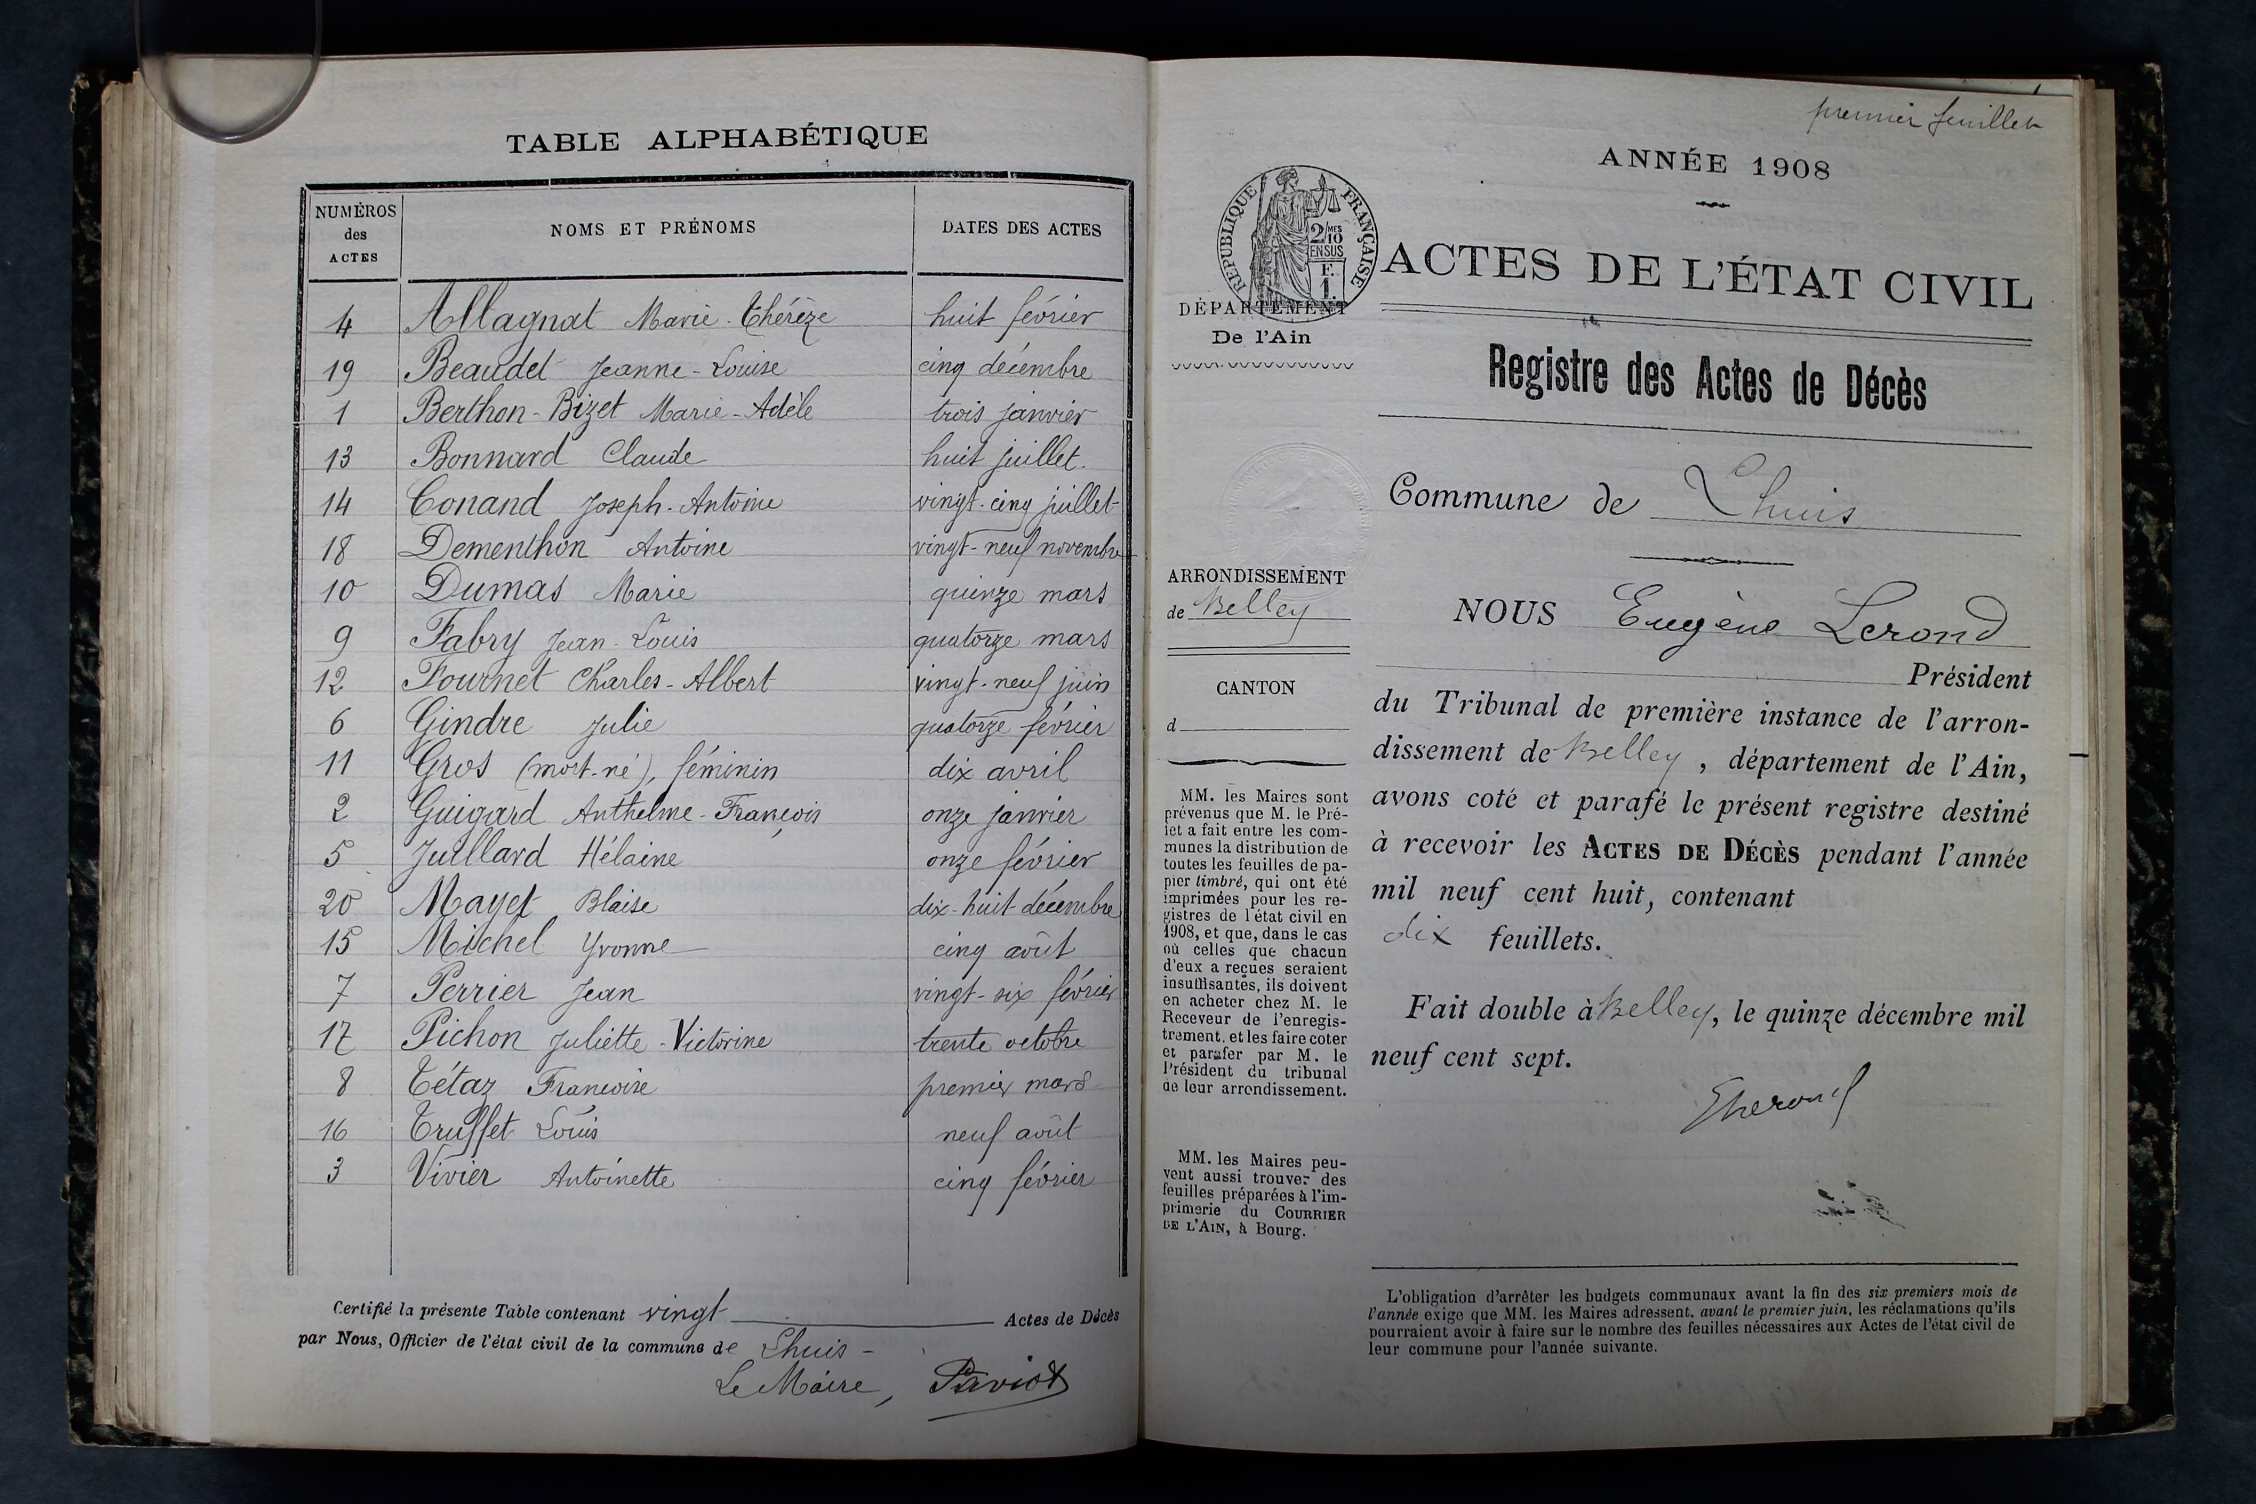 TABLE ALPHABÉTIQUE
NUMÉROS des ACTES NOMS ET PRÉNOMS DATES DES ACTES
4 Allagnat Marie-Thérèze huit février
19 Beaudet Jeanne-Louise cinq décembre
1 Berthon-Bizet Marie-Adèle trois janvier
13 Bonnard Claude huit juillet.
14 Conand Joseph-Antoine vingt-cinq juillet
18 Dementhon Antoine vingt-neuf novembre
10 Dumas Marie quinze mars
9 Fabry Jean-Louis quatorze mars
12 Fournet Charles-Albert vingt-neuf juin
6 Gindre Julie quatorze février
11 Gros (mort-né), féminin dix avril
2 Guigard Anthelme-François onze janvier
5 Juillard Hélaine onze février
20 Mayet Blaise dix-huit décembre
15 Michel Yvonne cinq août
7 Perrier Jean vingt-six février
17 Pichon Juliette-Victorine trente octobre
8 Tétaz Francoise premier mars
16 Truffet Louis neuf août
3 Vivier Antoinette cinq février
Certifié la présente Table contenant vingt Actes de Décès
par Nous, Officier de l'état civil de la commune de Lhuis -
Le Maire, Paviot
premier feuillet
ANNÉE 1908
RÉPUBLIQUE FRANÇAISE
2/MES
10
EN SUS
F.
1.
ACTES DE L'ÉTAT CIVIL
DÉPARTEMENT
De l'Ain
Registre des Actes de Décès
Commune de Lhuis
ARRONDISSEMENT
de Belley
CANTON
d
MM. les Maires sont
prévenus que M. le Pré-
fet a fait entre les com-
munes la distribution de
toutes les feuilles de pa-
pier timbré, qui ont été
imprimées pour les re-
gistres de l'état civil en
1908, et que, dans le cas
où celles que chacun
d'eux a reçues seraient
insuffisantes, ils doivent
en acheter chez M. le
Receveur de l'enregis-
trement, et les faire coter
et parafer par M. le
Président du tribunal
de leur arrondissement.
MM. les Maires peu-
vent aussi trouver des
feuilles préparées à l'im-
primerie du COURRIER
DE L'AIN, à Bourg.
NOUS Eugène Lerond
Président
du Tribunal de première instance de l'arron-
dissement de Belley, département de l'Ain,
avons coté et parafé le présent registre destiné
à recevoir les ACTES DE DÉCÈS pendant l'année
mil neuf cent huit, contenant
dix feuillets.
Fait double à Belley, le quinze décembre mil
neuf cent sept.
L'obligation d'arrêter les budgets communaux avant la fin des six premiers mois de
l'année exige que MM. les Maires adressent, avant le premier juin, les réclamations qu'ils
pourraient avoir à faire sur le nombre des feuilles nécessaires aux Actes de l'état civil de
leur commune pour l'année suivante.